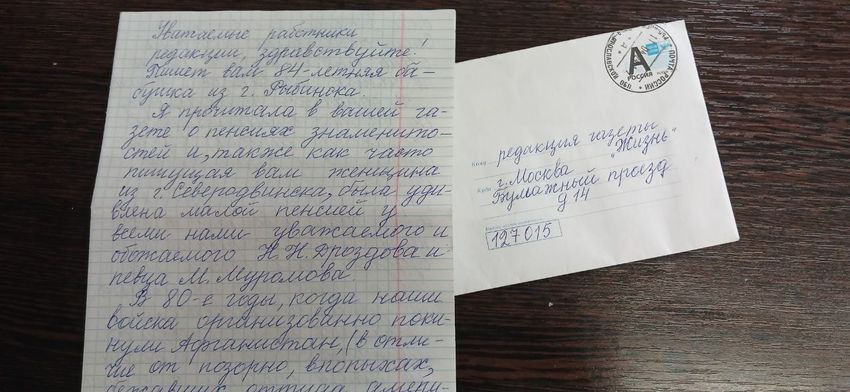 Уважаемые работники
редакции, здравствуйте!
Пишет вам 84-летняя ба-
бушка из г. Рыбинска.
Я прочитала в вашей га-
зете о пенсиях знаменито-
стей и, также как часто
пишущая вам женщина
из г. Северодвинска, была уди-
влена малой пенсией у
всеми нами уважаемого и
обожаемого Н.Н. Дроздова и
певца М. Муромова.
В 80-е годы, когда наши
войска организованно поки-
нули Афганистан, (в отли-
чие от позорно, впопыхах,
бежавших оттуда амери-
А
РОССИЯ
ПОЧТА РОССИИ
ЯРОСЛАВСКОЙ
Кому редакция газеты
"Жизнь"
Куда г. Москва
Бумажный проезд
д 14
127015